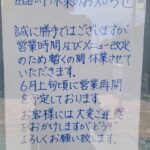 休業のお知らせ
誠に勝手ではございますが
営業時間及びメニュー改定
のため暫くの間休業させて
いただきます。
6月上旬頃に営業再開
を予定しております。
お客様には大変ご迷惑
をおかけしますがどうぞ
よろしくお願い致します。